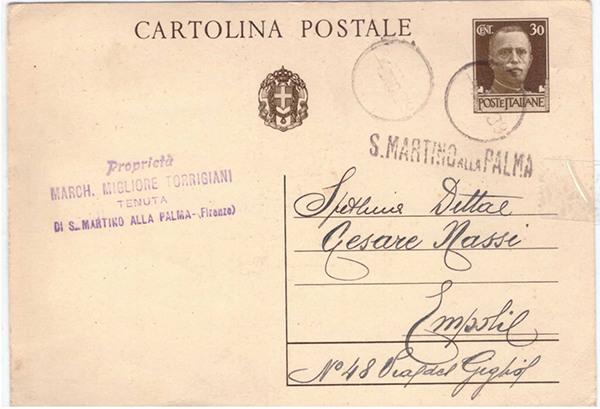 CARTOLINA POSTALE
CENT. 30
POSTE ITALIANE
S. MARTINO ALLA PALMA
Proprietà
MARCH. MIGLIORE TORRIGIANI
TENUTA
DI S. MARTINO ALLA PALMA-(Firenze)
Dittae
Cesare Nassi
Empoli
Nº 48 Via del